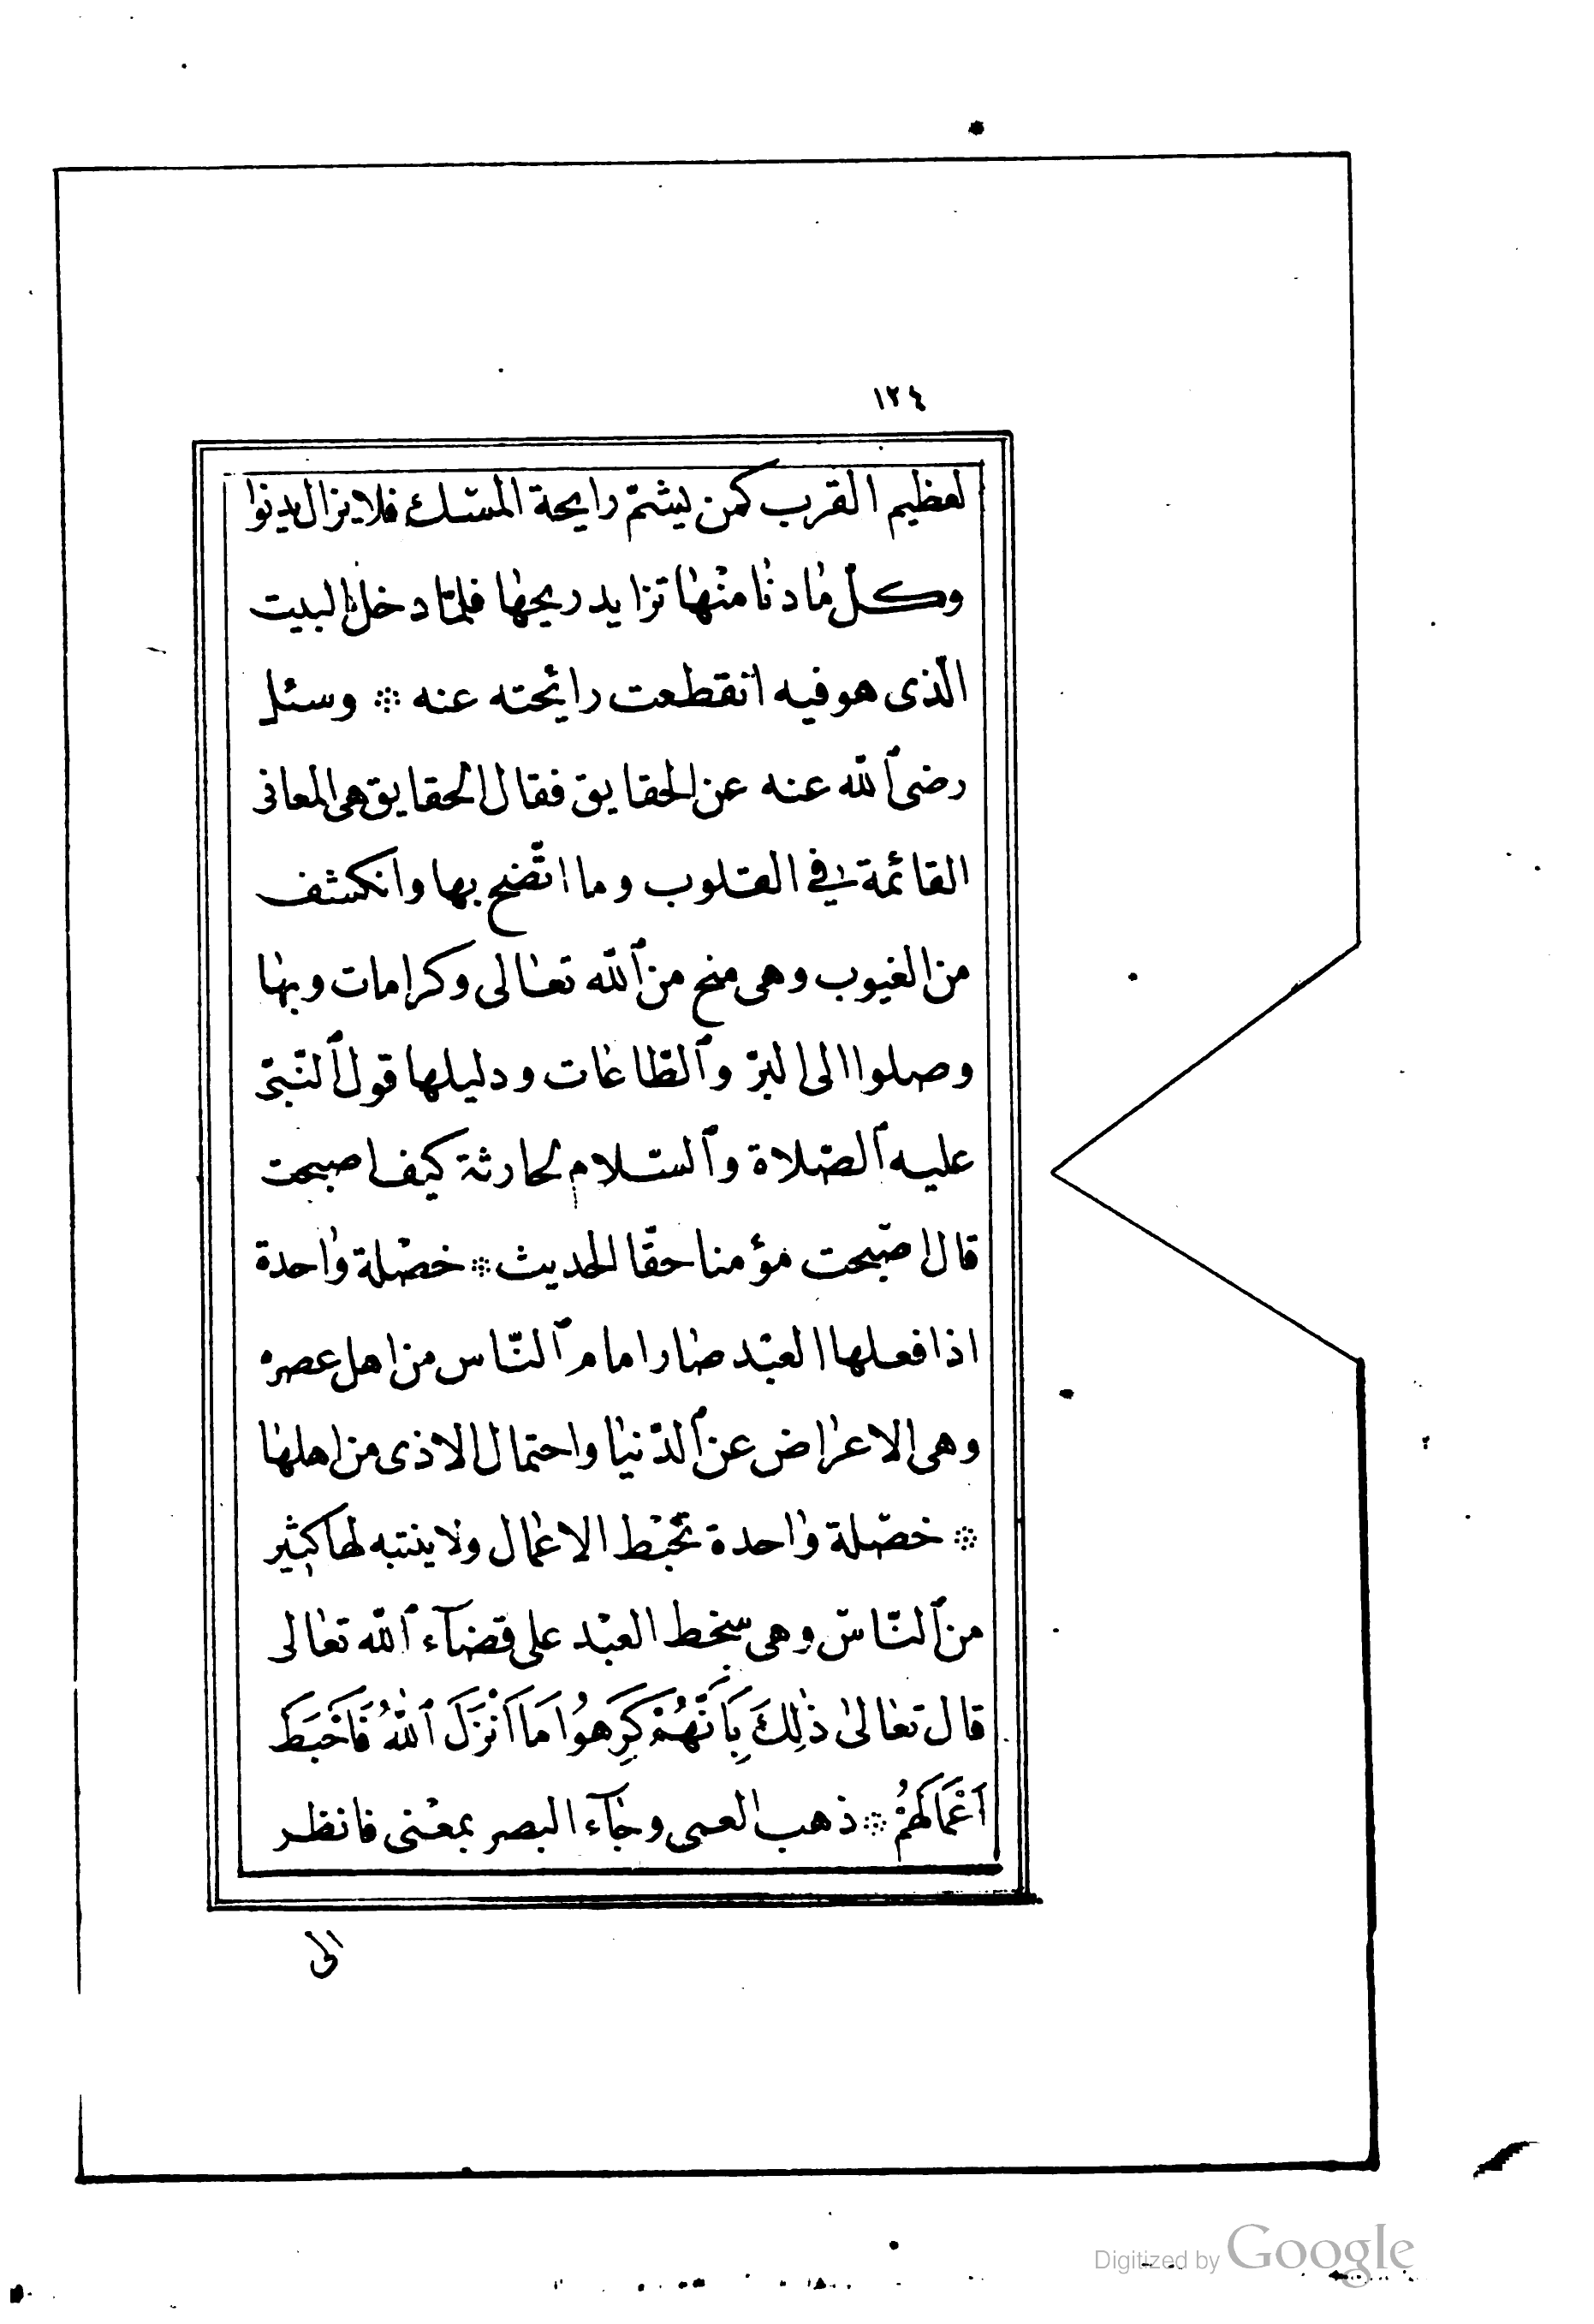 ١٢٤
لعظيم القرب كمن يشمّ رايحة المسْك فلا يزال يدنوا
وكلّ مٰا دنٰا منْهٰا تزايد ريحهٰا فلمّا دخل البيت
الّذى هو فيه انقطعت رائحته عنه ❊ وسئل
رضى ٱللّه عنه عن الحقايق فقال الحقايق هى المعانى
القائمة فى القلوب وما اتّضح بها وانكشف
من الغيوب وهى منح من ٱللّه تعٰالى وكرامات وبهٰا
وصلوا الى البرّ وٱلطّاعٰات ودليلها قول ٱلنّبىّ
عليه ٱلصّلاة وٱلسّلام لحارثة كيف اصبحت
قال اصْبحت مؤمنا حقّا الحديث ❊ خصْلة وٰاحدة
اذا فعلها العبْد صٰار امام ٱلنّاس من اهل عصره
وهى الاعرٰاض عن ٱلدّنيٰا واحتمال الاذى من اهلهٰا
❊ خصْلة وٰاحدة تحْبْط الاعْمٰال ولا ينتبه لها كثير
من ٱلنّاس وهى سخط العبْد على قضآء ٱللّه تعٰالى
قال تعٰالىٰ ذٰلِكَ بِأَنَّهُمْ كَرِهوُا مَا أَنْزَلَ ٱللّٰهُ فَأَحْبَطَ
أَعْمَالَهُمْ ❊ ذهب العمى وجٰآء البصر بمعْنى فانظر
الى
Digitized by Google